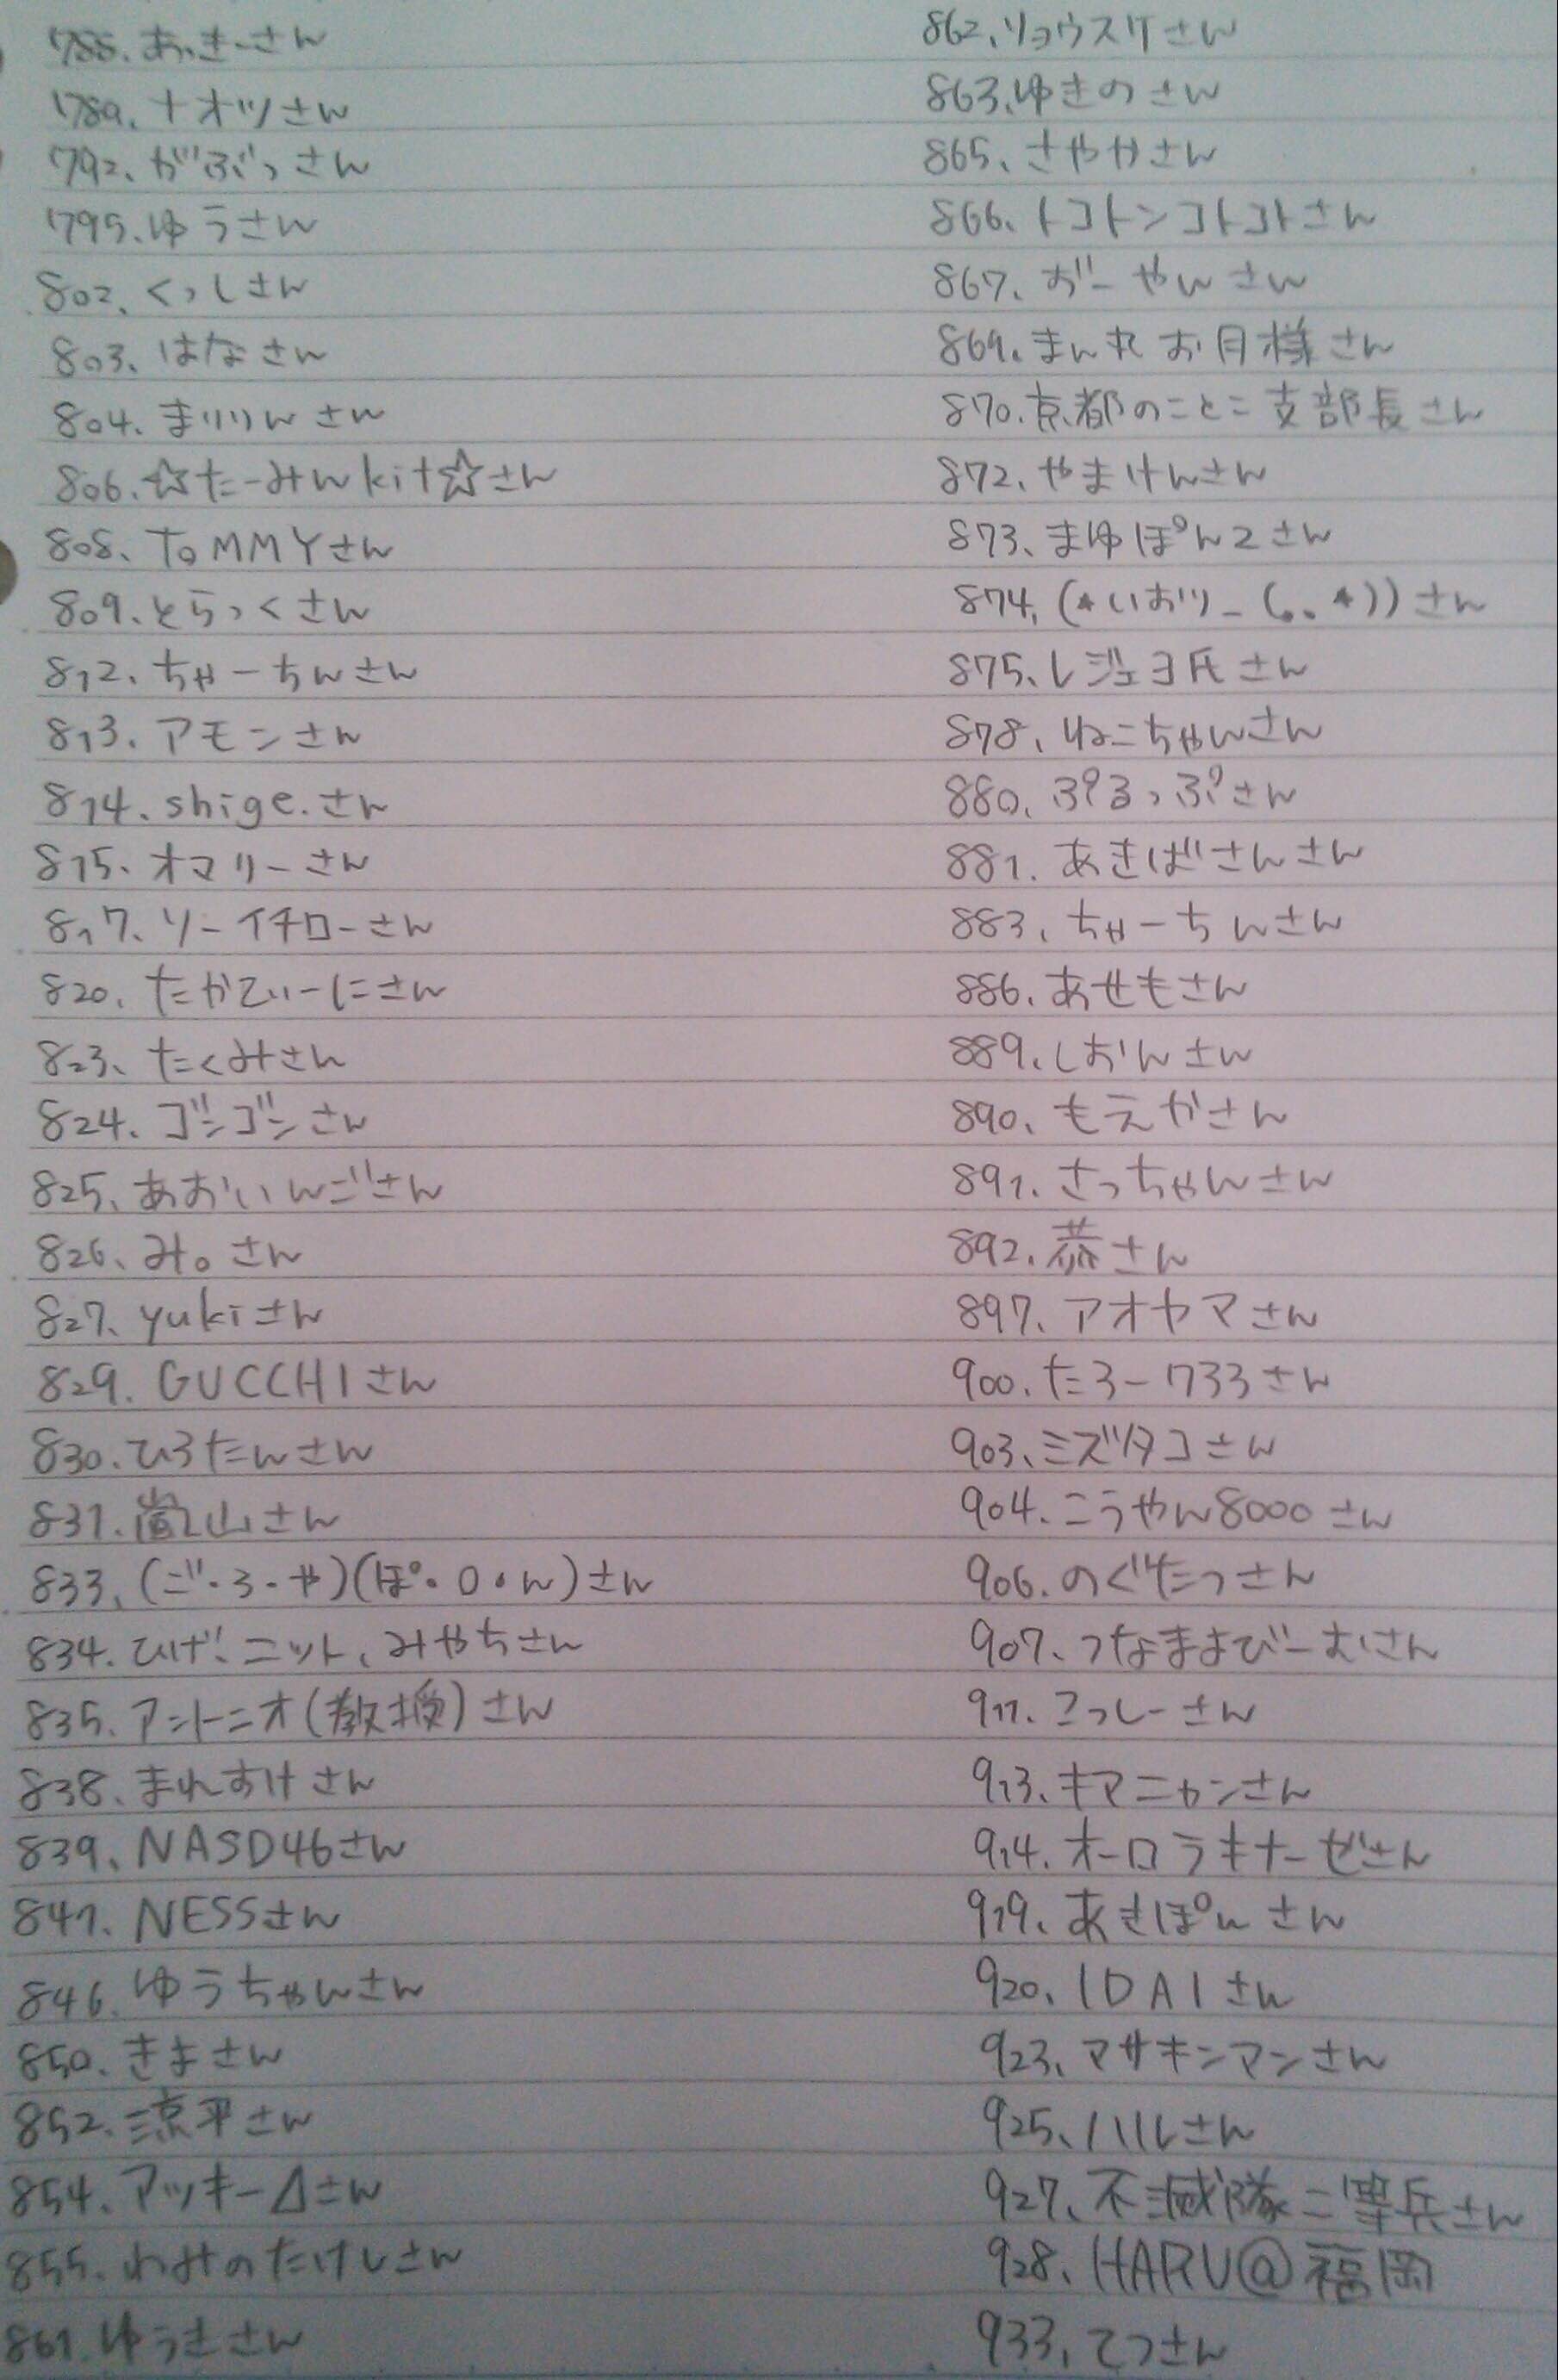 788. あっきーさん
789. ナオツさん
792. がぶっさん
795. ゆうさん
802. くっしさん
803. はなさん
804. まりりんさん
806. ☆たーみんkit☆さん
808. TOMMYさん
809. とらっくさん
812. ちゃーちんさん
813. アモンさん
814. shige.さん
815. オマリーさん
817. ソーイチローさん
820. たかてぃーにさん
823. たくみさん
824. ゴンゴンさん
825. あおいんごさん
826. み。さん
827. yukiさん
829. GUCCHIさん
830. ひろたんさん
831. 嵐山さん
833. (ご・3・や)(ぽ・0・ん)さん
834. ひげ、ニット、みやちさん
835. アントニオ(教授)さん
838. まれすけさん
839. NASD46さん
841. NESSさん
846. ゆうちゃんさん
850. きよさん
852. 涼平さん
854. アッキー⊿さん
855. わみのたけしさん
861. ゆうきさん
862. リョウスケさん
863. ゆきのさん
865. さやかさん
866. トコトンコトコトさん
867. おﾞーやんさん
869. まん丸お月様さん
870. 京都のことこ支部長さん
872. やまけんさん
873. まゆぽん2さん
874. (*いおり_(。、*))さん
875. レジェヨ氏さん
878. ねこちゃんさん
880. ぷるっぷさん
881. あきばさんさん
883. ちゃーちんさん
886. あせもさん
889. しおんさん
890. もえかさん
891. さっちゃんさん
892. 恭さん
897. アオヤマさん
900. たろー733さん
903. ミズタコさん
904. こうやん8000さん
906. のぐたつさん
907. つなまよびーむさん
911. こっしーさん
913. キマニャンさん
914. オーロラキナーゼさん
919. あきぽんさん
920. IDAIさん
923. マサキンマンさん
925. ハルさん
927. 不滅隊二等兵さん
928. HARU@福岡
933. てつさん